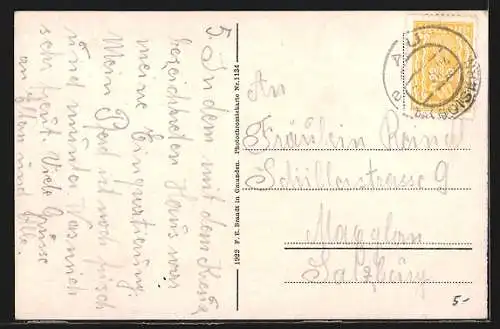 5 In dem mit dem Kreuz
bezeichneten Haus war
meine Einquartierung.
Mein Pferd ist noch frisch
und munter was mich
sehr freut. Viele Grüsse
an Mama und
Alle.
1922 F. E. Brandt in Gmunden. Photochromiekarte Nr. 1134
An
Fräulein Reindl
Schillerstrasse 9
Maxglan
Salzburg
5-